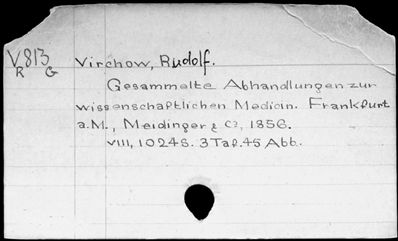 V813 Virchow, Rudolf.
R G
Gesammelte Abhandlungen zur
wissenschaftlichen Medicin. Frankfurt
a.M., Meidinger & Cº, 1856.
VIII, 1024S. 3Taf. 45 Abb.